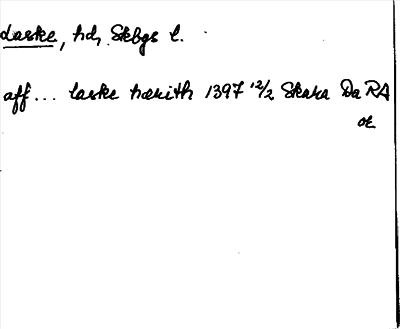 Laske, hd, Skbgs l.
aff... laske hærith 1397 12/2 Skara Da RA
or